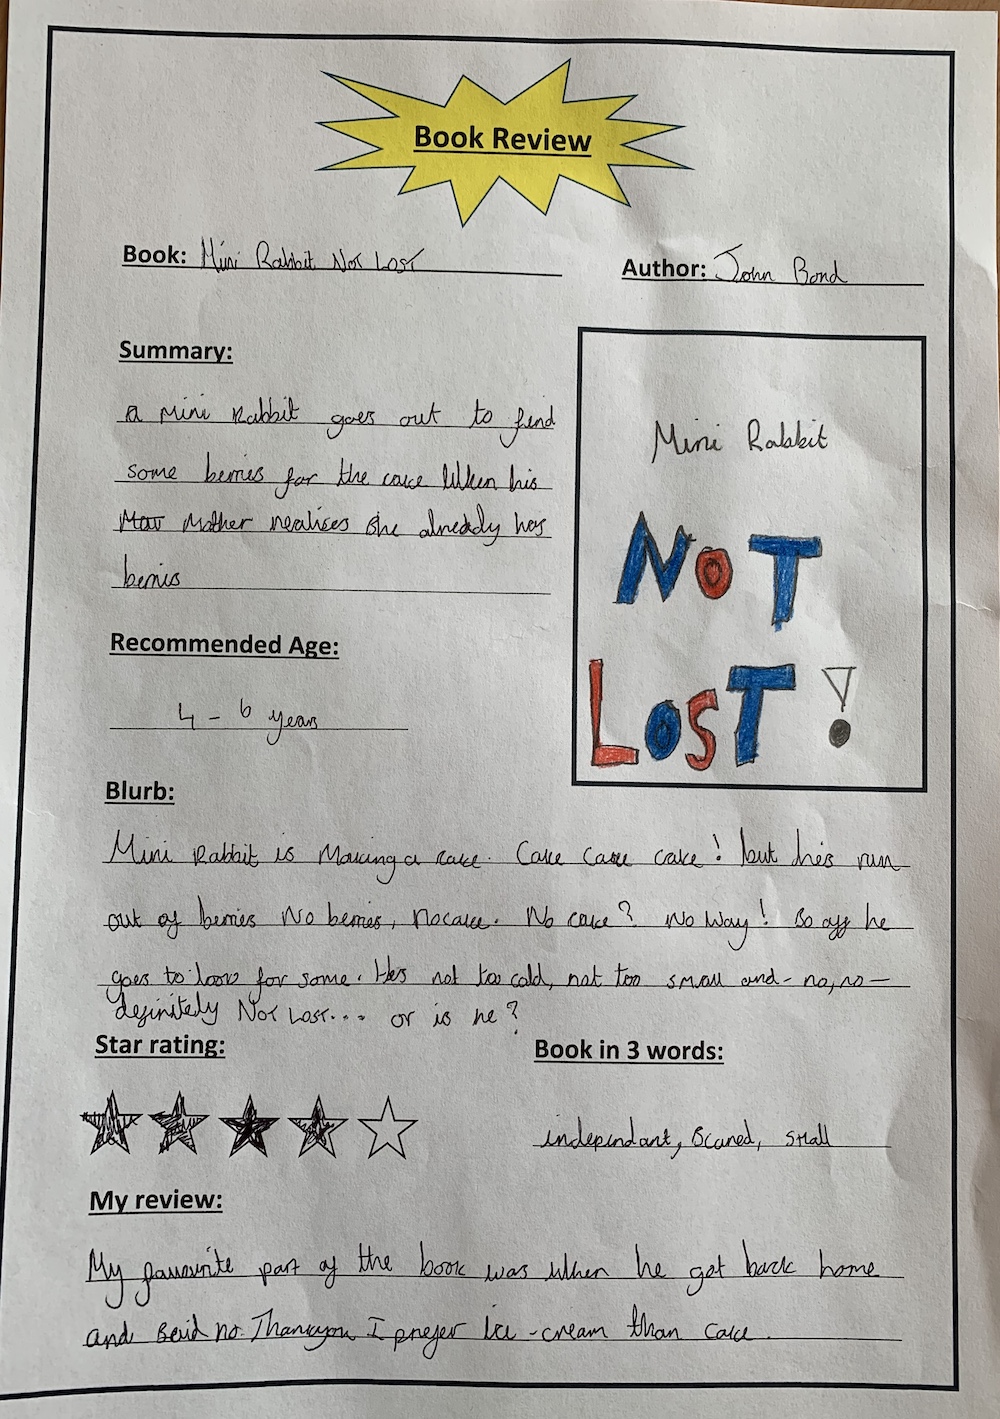 Book Review
Book: Mini Rabbit Not Lost
Author: John Bond
Summary:
a Mini Rabbit goes out to find
some berries for the cake When his
Mother realises she already has
berries
Mini Rabbit
NOT
LOST!
Recommended Age:
4 - 6 years
Blurb:
Mini Rabbit is Making a cake. Cake Cake cake! but he's run
out of berries No berries, No cake. No cake? No Way! So off he
goes to look for some. He's not too cold, not too small and - no, no -
definitely Not Lost... or is he?
Star rating:
Book in 3 words:
independant, Scared, small
My review:
My favourite part of the book was when he got back home
and Said no. Thankyou I prefer Ice-cream than cake.